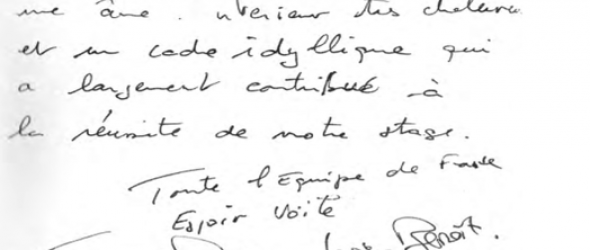 une âme . très
et un cadre idyllique qui
a largement contribué à
la réussite de notre stage.
Toute l'Equipe de
Espoir Voile
Benoît.